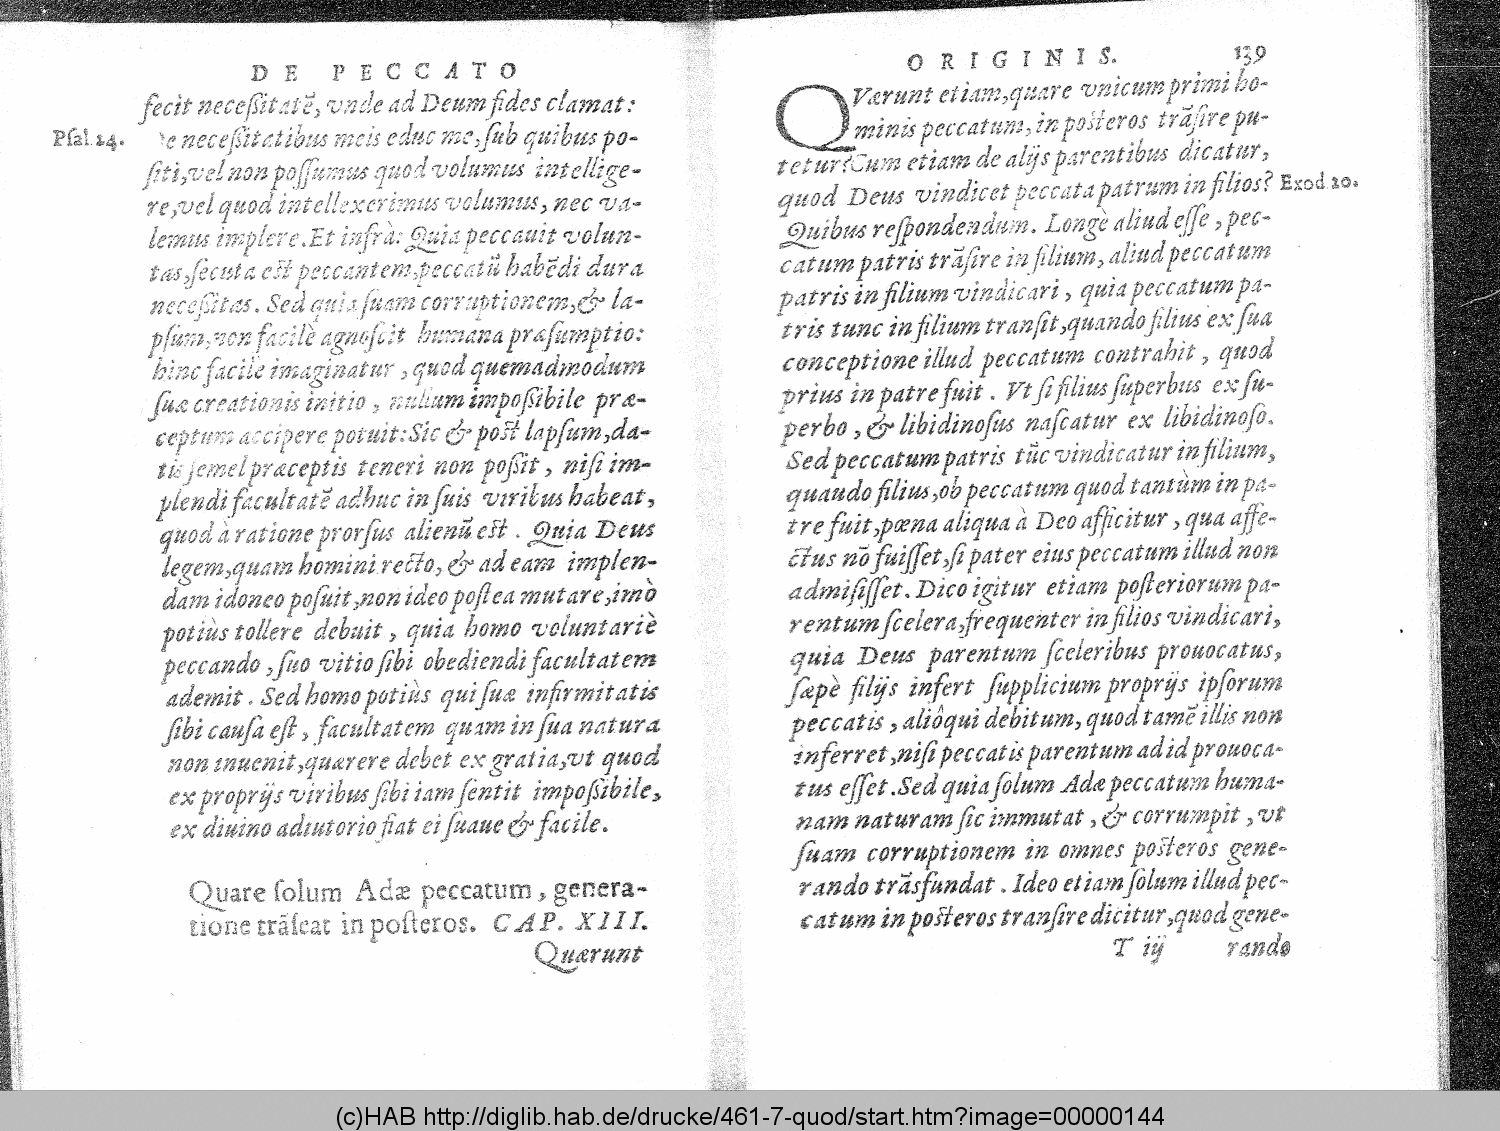 DE PECCATO
fecit neceſſitatẽ, vnde ad Deum fides clamat:
Pſal. 24.
De neceſſitatibus meis educ me, ſub quibus po-
ſiti, vel non poſſumus quod volumus intellige-
re, vel quod intellexerimus volumus, nec va-
lemus implere. Et infrà: Quia peccauit volun-
tas, ſecuta eſt peccantem, peccatũ habẽdi dura
neceſſitas. Sed quia ſuam corruptionem, & la-
pſum, non facilè agnoſcit humana præſumptio:
hinc facile imaginatur, quod quemadmodum
ſuæ creationis initio, nullum impoſſibile præ-
ceptum accipere potuit: Sic & poſt lapſum, da-
tis ſemel præceptis teneri non poſſit, niſi im-
plendi facultatẽ adhuc in ſuis viribus habeat,
quod à ratione prorſus alienũ eſt. Quia Deus
legem, quam homini recto, & ad eam implen-
dam idoneo poſuit, non ideo poſtea mutare, imò
potiùs tollere debuit, quia homo voluntariè
peccando, ſuo vitio ſibi obediendi facultatem
ademit. Sed homo potiùs qui ſuæ infirmitatis
ſibi cauſa eſt, facultatem quam in ſua natura
non inuenit, quærere debet ex gratia, vt quod
ex proprijs viribus ſibi iam ſentit impoſſibile,
ex diuino adiutorio fiat ei ſuaue & facile.
Quare ſolum Adæ peccatum, genera-
tione trãſeat in poſteros. CAP. XIII.
Quærunt
ORIGINIS. 139
QVærunt etiam, quare vnicum primi ho-
minis peccatum, in poſteros trãſire pu-
tetur? Cum etiam de alijs parentibus dicatur,
quod Deus vindicet peccata patrum in filios?
Exod. 20.
Quibus reſpondendum. Longè aliud eſſe, pec-
catum patris trãſire in filium, aliud peccatum
patris in filium vindicari, quia peccatum pa-
tris tunc in filium tranſit, quando filius ex ſua
conceptione illud peccatum contrahit, quod
prius in patre fuit. Vt ſi filius ſuperbus ex ſu-
perbo, & libidinoſus naſcatur ex libidinoſo.
Sed peccatum patris tũc vindicatur in filium,
quando filius, ob peccatum quod tantùm in pa-
tre fuit, pœna aliqua à Deo afficitur, qua affe-
ctus nõ fuiſſet, ſi pater eius peccatum illud non
admiſiſſet. Dico igitur etiam poſteriorum pa-
rentum ſcelera, frequenter in filios vindicari,
quia Deus parentum ſceleribus prouocatus,
ſæpè filijs infert ſupplicium proprijs ipſorum
peccatis, aliôqui debitum, quod tamẽ illis non
inferret, niſi peccatis parentum ad id prouoca-
tus eſſet. Sed quia ſolum Adæ peccatum huma-
nam naturam ſic immutat, & corrumpit, vt
ſuam corruptionem in omnes poſteros gene-
rando trãsfundat. Ideo etiam ſolum illud pec-
catum in poſteros tranſire dicitur, quod gene-
T iij rando
(c)HAB http://diglib.hab.de/drucke/461-7-quod/start.htm?image=00000144